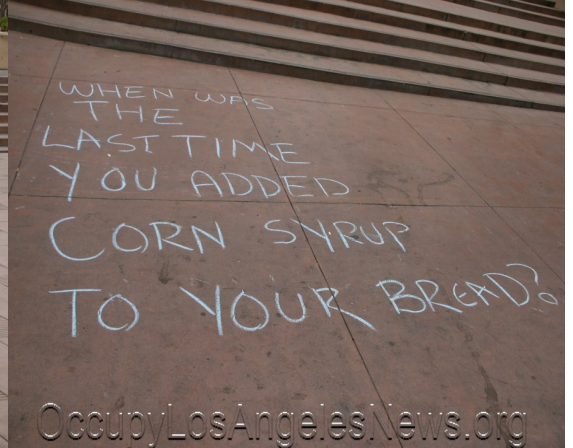 WHEN WAS
THE
LAST TIME
YOU ADDED
CORN SYRUP
TO YOUR BREAD?
OccupyLosAngelesNews.org